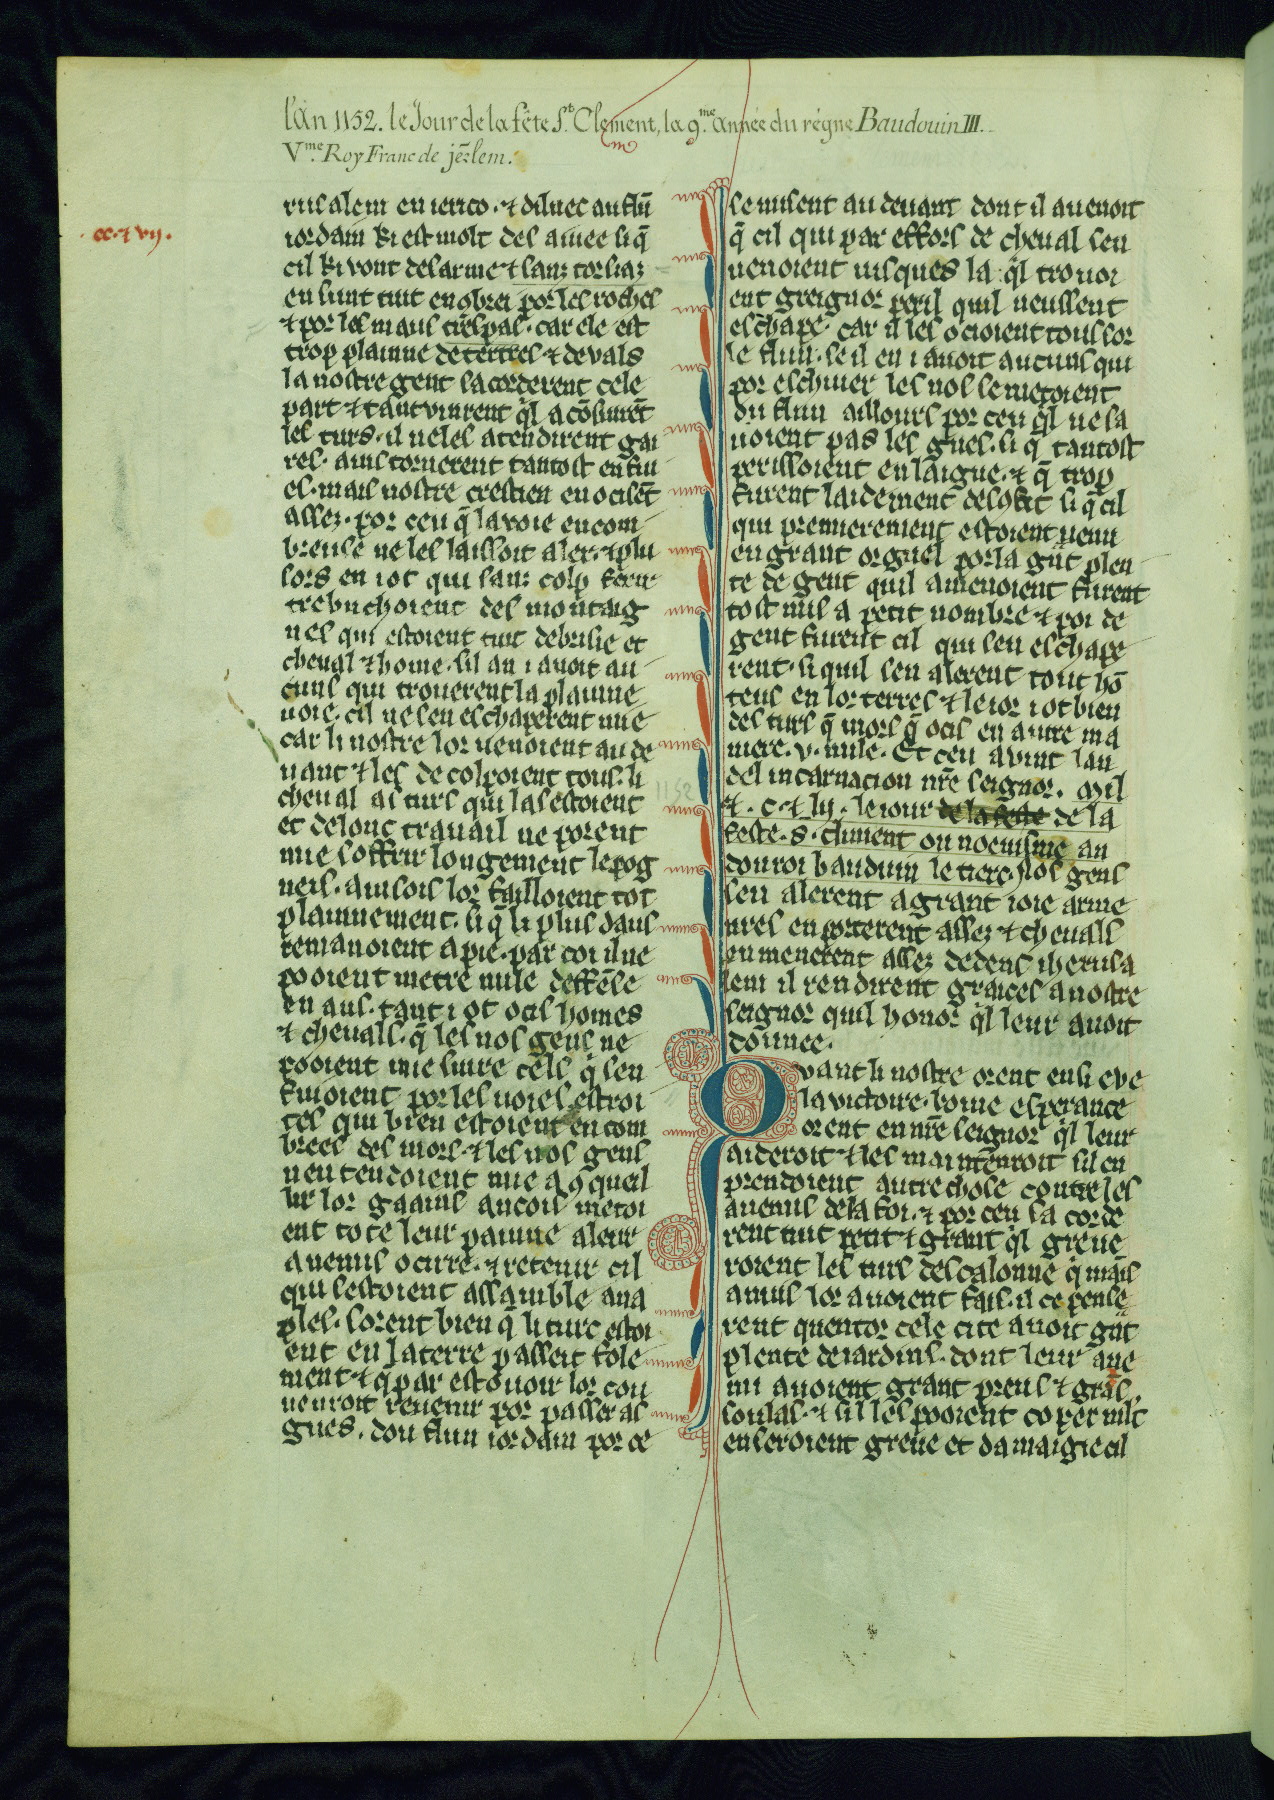 l'an 1152. le Jour de la fête S.t Clement, la 9.me année du règne Baudouin III.
V.me Roy Franc de jēzlem.
cc. ⁊ vij.
rusalem en ierico. ⁊ diluec au flū
iordain ki est molt des aisiee si q̄
cil ki vont desarme ⁊ sanz torsiaz
en sunt tuit enobrei por les roches
⁊ por les maus trespas. car ele est
trop plainne de tertres ⁊ de vals
la nostre gent sacorderent cele
part ⁊ tant vinrent q̄l a cōsiurēt
les turs. il ne les atendirent gai
res. ains tornerent tantost en fui
es. mais nostre crestien en ocisēt
assez. por ceu q̄ la voie encom
breuse ne les laissoit aler. ⁊ plu
sors en i ot qui sanz colp ferir
trebuchoient des montaig
nes qui estoient tuit debrisie et
cheual ⁊ home. sil an i auoit au
cuns qui trouerent la plainne
uoie. cil ne sen eschaperent mie
car li nostre lor uenoient au de
uant ⁊ les decolpoient tous. li
cheual as turs qui las estoient
et de lonc trauail ne porent
mie soffrir longement le pog
neis. ainsois lor failloient tot
plainnement. si q̄ li plus dans
remanoient a pie. par coi il ne
pooient metre nule deffēse
en aus. tant i ot ocis homes
⁊ cheuals. q̄ les nos gens ne
pooient mie suire cels q̄ sen
fuioient por les uoies estroi
tes qui bien estoient encom
brees des mors. ⁊ les nos gens
nentendoient mie a 9queil
lir lor gaains ancois metoi
ent tote leur painne a leur
anemis ocirre. ⁊ retenir cil
qui sestoient assamble a na
ples. sorent bien q̄ li turc estoi
ent en la terre passeit fole
ment ⁊ q̄ par estouoir lor con
uenroit reuenir por passer as
gues. dou flun iordain por ce
se misent au deuant dont il auenoit
q̄ cil qui par effors de cheual sen
uenoient iusques la. q̄l trouoi
ent greignor peril quil neussent
eschape. car il les ocioient tous sor
le flun. se il en i auoit aucuns qui
por eschiuer les nos se metoient
du flun aillours por ceu q̄l ne sa
uoient pas les gues. si q̄ tantost
perissoient en laigue. ⁊ q̄ trop
furent laidement desōfit si q̄ cil
qui premierement estoient uenu
en grant orguel por la grāt plen
te de gent quil amenoient furent
tost mis a petit nombre ⁊ poi de
gent furent cil qui sen eschape
rent. si quil sen alerent tout hō
teus en lor terres ⁊ le ior i ot bien
des turs q̄ mors q̄ ocis en autre ma
niere. v. mile. Et ceu auint lan
del incarnacion nr̄e seignor. mil
⁊. c. ⁊ lij. le iour de la feste de la
feste. s. climent ou noeuisme an
dou roi bauduin le tierc. Nos gens
sen alerent a grant ioie arme
ures en porterent assez ⁊ cheuals
en menerent assez dedens iherusa
lem il rendirent graices a nostre
seignor quil honor q̄l leur auoit
donnee.
Quant li nostre orent ensi eue
la victoire. bonne esperance
orent en nr̄e seignor q̄l leur
aideroit ⁊ les maintenroit sil en
prendoient autre chose contre les
anemis de la foi. ⁊ por ceu sa corde
rent tuit petit ⁊ grant q̄l greue
roient les turs descalonne q̄ mais
amis lor auoient fais. il ce pense
rent quentor cele cite auoit grāt
plente de iardins. dont leur ane
mi auoient grant preus ⁊ grās
soulas. ⁊ sil les pooient coper mlt
en seroient greue et damaigie cil